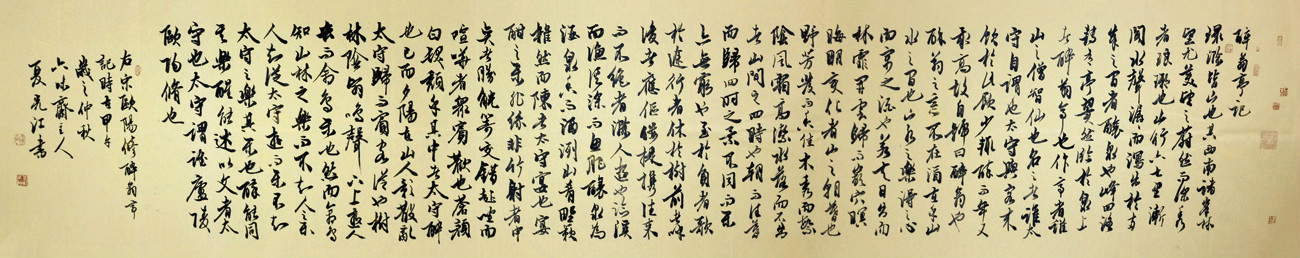 醉翁亭記
環滁皆山也其西南諸峯林
壑尤美望之蔚然而深秀
者琅琊也山行六七里漸
聞水聲潺潺而瀉出於兩
峯之間者釀泉也峰回路
轉有亭翼然臨於泉上
者醉翁亭也作亭者誰
山之僧智仙也名之者誰太
守自謂也太守與客來
飲於此飲少輒醉而年又
最高故自號曰醉翁也
醉翁之意不在酒在乎山
水之間也山水之樂得之心
而寓之酒也若夫日出而
林霏開雲歸而巖穴暝
晦明變化者山之朝暮也
野芳發而幽香佳木秀而繁
陰風霜高潔水落而石出
者山間之四時也朝而往暮
而歸四時之景不同而樂
亦無窮也至於負者歌
於途行者休於樹前者呼
後者應傴僂提攜往來
而不絕者滁人遊也臨溪
而漁溪深而魚肥釀泉為
酒泉香而酒洌山肴野蔌
雜然而陳者太守宴也宴
酣之樂非絲非竹射者中
奕者勝觥籌交錯起坐而
喧嘩者眾賓歡也蒼顏
白髮頹乎其中者太守醉
也已而夕陽在山人影散亂
太守歸而賓客從也樹
林陰翳鳴聲上下遊人
去而禽鳥樂也然而禽鳥
知山林之樂而不知人之樂
人知從太守遊而樂而不知
太守之樂其樂也醉能同
其樂醒能述以文者太
守也太守謂誰廬陵
歐陽脩也
右宋歐陽修醉翁亭
記時在甲午
歲之仲秋
六味齋主人
夏 書